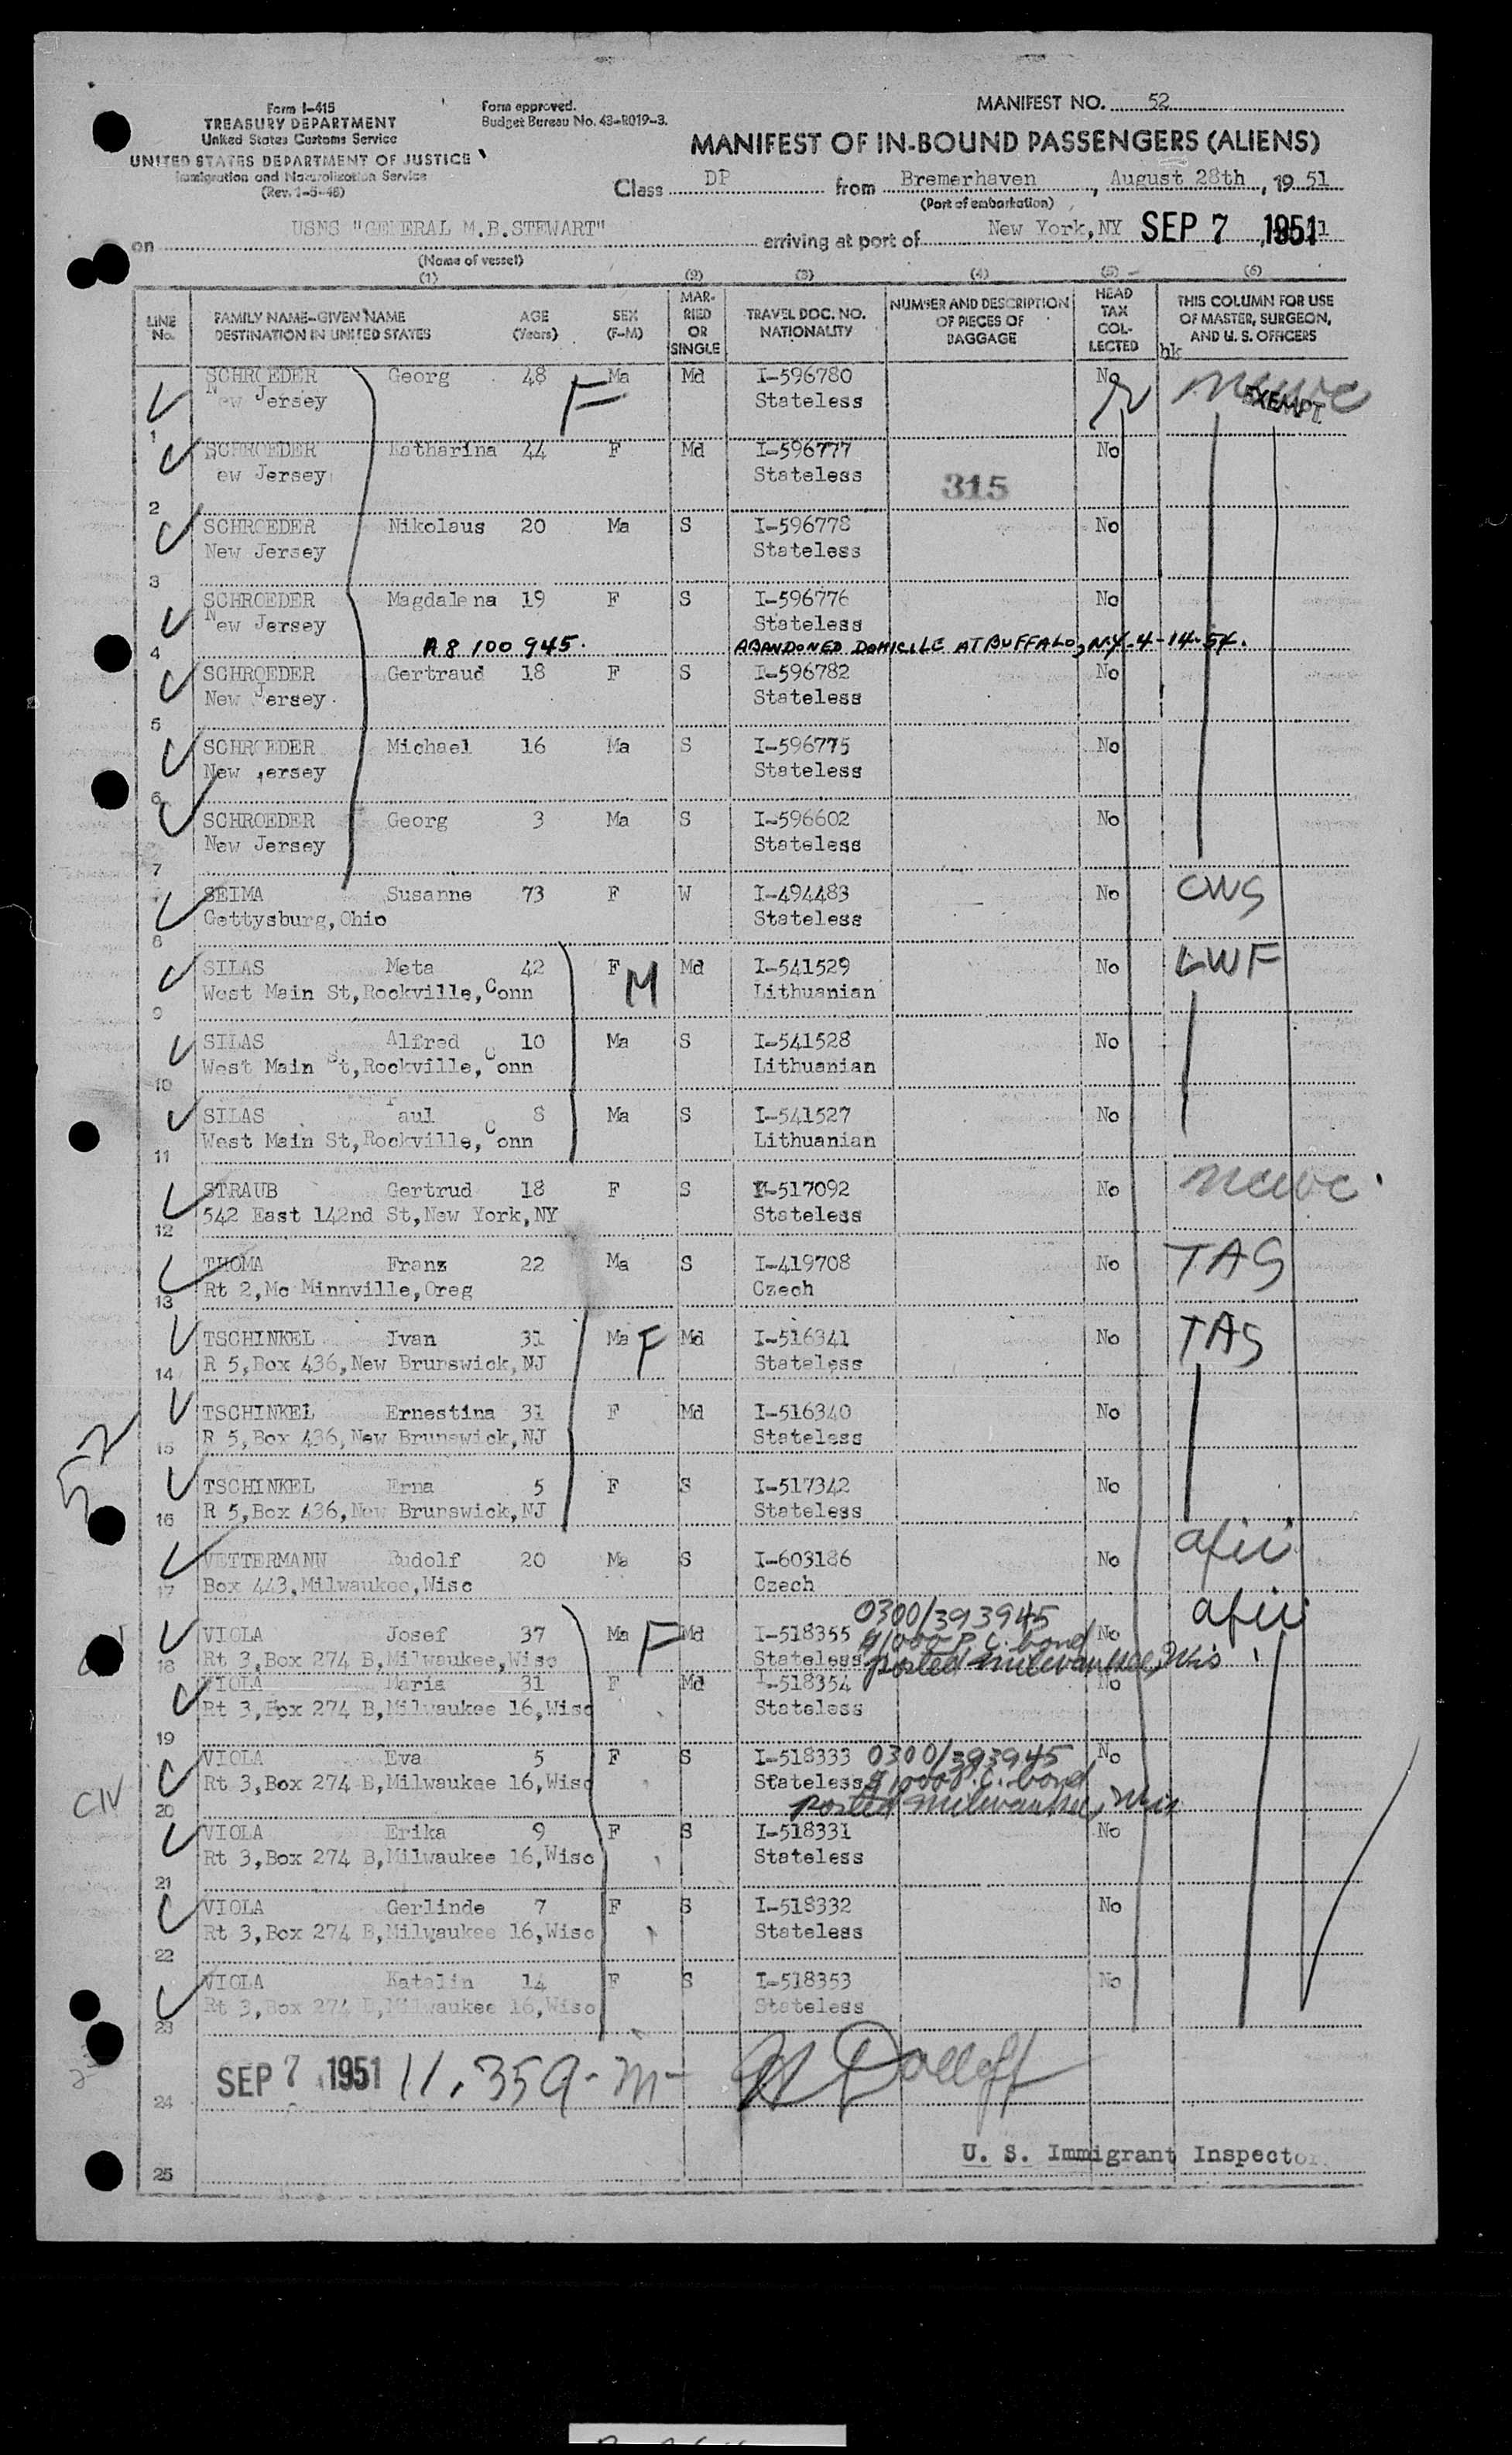 Form I-415
TREASURY DEPARTMENT
United States Customs Service
UNITED STATES DEPARTMENT OF JUSTICE
Immigration and Naturalization Service
(Rev. 1-5-48)
Form approved.
Budget Bureau No. 43-R019-3.
MANIFEST NO. 52
MANIFEST OF IN-BOUND PASSENGERS (ALIENS)
Class DP from Bremerhaven, August 28th, 19 51
(Port of embarkation)
on USNS "GENERAL M.B.STEWART" arriving at port of New York,NY SEP 7 1951
(Name of vessel)
(1) (2) (3) (4) (5) (6)
LINE No. FAMILY NAME-GIVEN NAME DESTINATION IN UNITED STATES AGE (Years) SEX (F-M) MARRIED OR SINGLE TRAVEL DOC. NO. NATIONALITY NUMBER AND DESCRIPTION OF PIECES OF BAGGAGE HEAD TAX COLLECTED THIS COLUMN FOR USE OF MASTER, SURGEON, AND U. S. OFFICERS
hk
SCHROEDER Georg 48 Ma F Md I-596780 No ncwc
New Jersey Stateless EXEMPT
1
SCHROEDER Katharina 44 F Md I-596777 No
New Jersey Stateless 315
2
SCHROEDER Nikolaus 20 Ma S I-596778 No
New Jersey Stateless
3
SCHROEDER Magdalena 19 F S I-596776 No
New Jersey Stateless
4 A8 100 945. ABANDONED DOMICILE AT BUFFALO, N.Y. 4-14-54.
SCHROEDER Gertraud 18 F S I-596782 No
New Jersey Stateless
5
SCHROEDER Michael 16 Ma S I-596775 No
New Jersey Stateless
6
SCHROEDER Georg 3 Ma S I-596602 No
New Jersey Stateless
7
SEIMA Susanne 73 F W I-494483 No CWS
Gettysburg,Ohio Stateless
8
SILAS Meta 42 F M Md I-541529 No LWF
West Main St,Rockville,Conn Lithuanian
9
SILAS Alfred 10 Ma S I-541528 No
West Main St,Rockville,Conn Lithuanian
10
SILAS Paul 8 Ma S I-541527 No
West Main St,Rockville,Conn Lithuanian
11
STRAUB Gertrud 18 F S I-517092 No ncwc
542 East 142nd St,New York,NY Stateless
12
THOMA Franz 22 Ma S I-419708 No TAS
Rt 2,Mc Minnville,Oreg Czech
13
TSCHINKEL Ivan 31 Ma F Md I-516341 No TAS
R 5,Box 436,New Brunswick,NJ Stateless
14
TSCHINKEL Ernestina 31 F Md I-516340 No
R 5,Box 436,New Brunswick,NJ Stateless
15
52
TSCHINKEL Erna 5 F S I-517342 No
R 5,Box 436,New Brunswick,NJ Stateless
16
VETTERMANN Rudolf 20 Ma S I-603186 No afii
Box 443,Milwaukee,Wisc Czech
17
0300/393945 afii
VIOLA Josef 37 Ma F Md I-518355 $1000 P.C. bond No
Rt 3,Box 274 B,Milwaukee,Wisc Stateless posted Milwaukee, Wis
18
VIOLA Maria 31 F Md I-518354 No
Rt 3,Box 274 B,Milwaukee 16,Wisc Stateless
19
VIOLA Eva 5 F S I-518333 0300/393945 No
Rt 3,Box 274 B,Milwaukee 16,Wisc Stateless $1000 P.C. bond
CIV
20 posted Milwaukee, Wis
VIOLA Erika 9 F S I-518331 No
Rt 3,Box 274 B,Milwaukee 16,Wisc Stateless
21
VIOLA Gerlinde 7 F S I-518332 No
Rt 3,Box 274 B,Milwaukee 16,Wisc Stateless
22
VIOLA Katalin 14 F S I-518353 No
Rt 3,Box 274 B,Milwaukee 16,Wisc Stateless
23
SEP 7 1951 11.35 a-m-
24
U. S. Immigrant Inspector
25